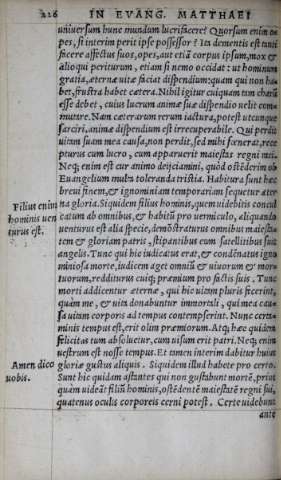 226 IN EVANG. MATTHAEI
uniuersum hunc mundum lucrifacere? Quorsum enim o=
pes, si interim perit ipse possessor? Ita dementis est tanti
facere affectus suos, opes, aut etiā corpus ipsum, mox &
alioqui periturum, etiam si nemo occidat: ut hominum
gratia, æternæ uitæ faciat dispendium: quam qui non ha=
bet, frustra habet cætera. Nihil igitur cuiquam tam charū
esse debet, cuius lucrum animæ suæ dispendio uelit com=
mutare. Nam cæterarum rerum iactura, potest utcunque
sarciri, animæ dispendium est irrecuperabile. Qui perdit
uitam suam mea causa, non perdit, sed mihi fœnerat, rece
pturus cum lucro, cum apparuerit maiestas regni mei.
Neq; enim est cur animo deijciamini, quòd ostēderim ob
Euangelium multa toleranda tristia. Habitura sunt hæc
breui finem, & ignominiam temporariam sequetur æter=
Filius enim
hominis uen
turus est.
na gloria. Siquidem filius hominis, quem uidebitis concul
catum ab omnibus, & habitū pro uermiculo, aliquando
uenturus est alia specie, demōstraturus omnibus maiesta=
tem & gloriam patris, stipantibus eum satellitibus suis
angelis. Tunc qui hic iudicatus erat, & condēnatus igno
miniosa morte, iudicem aget omniū & uiuorum & mor=
tuorum, redditurus cuiq; præmium pro factis suis. Tunc
morti addicentur æternæ, qui hic uitam pluris fecerint,
quàm me, & uita donabuntur immortali, qui mea cau=
sa uitam corporis ad tempus contempserint. Nunc certa=
minis tempus est, erit olim præmiorum. Atq; hæc quidem
felicitas tum absoluetur, cum uisum erit patri. Neq; enim
uestrum est nosse tempus. Et tamen interim dabitur huius
Amen dico
uobis.
gloriæ gustus aliquis. Siquidem illud habete pro certo.
Sunt hic quidam astantes qui non gustabunt mortē, prius
quàm uideāt filiū hominis, ostēdentē maiestatē regni sui,
quatenus oculis corporeis cerni potest. Certe uidebunt
ante